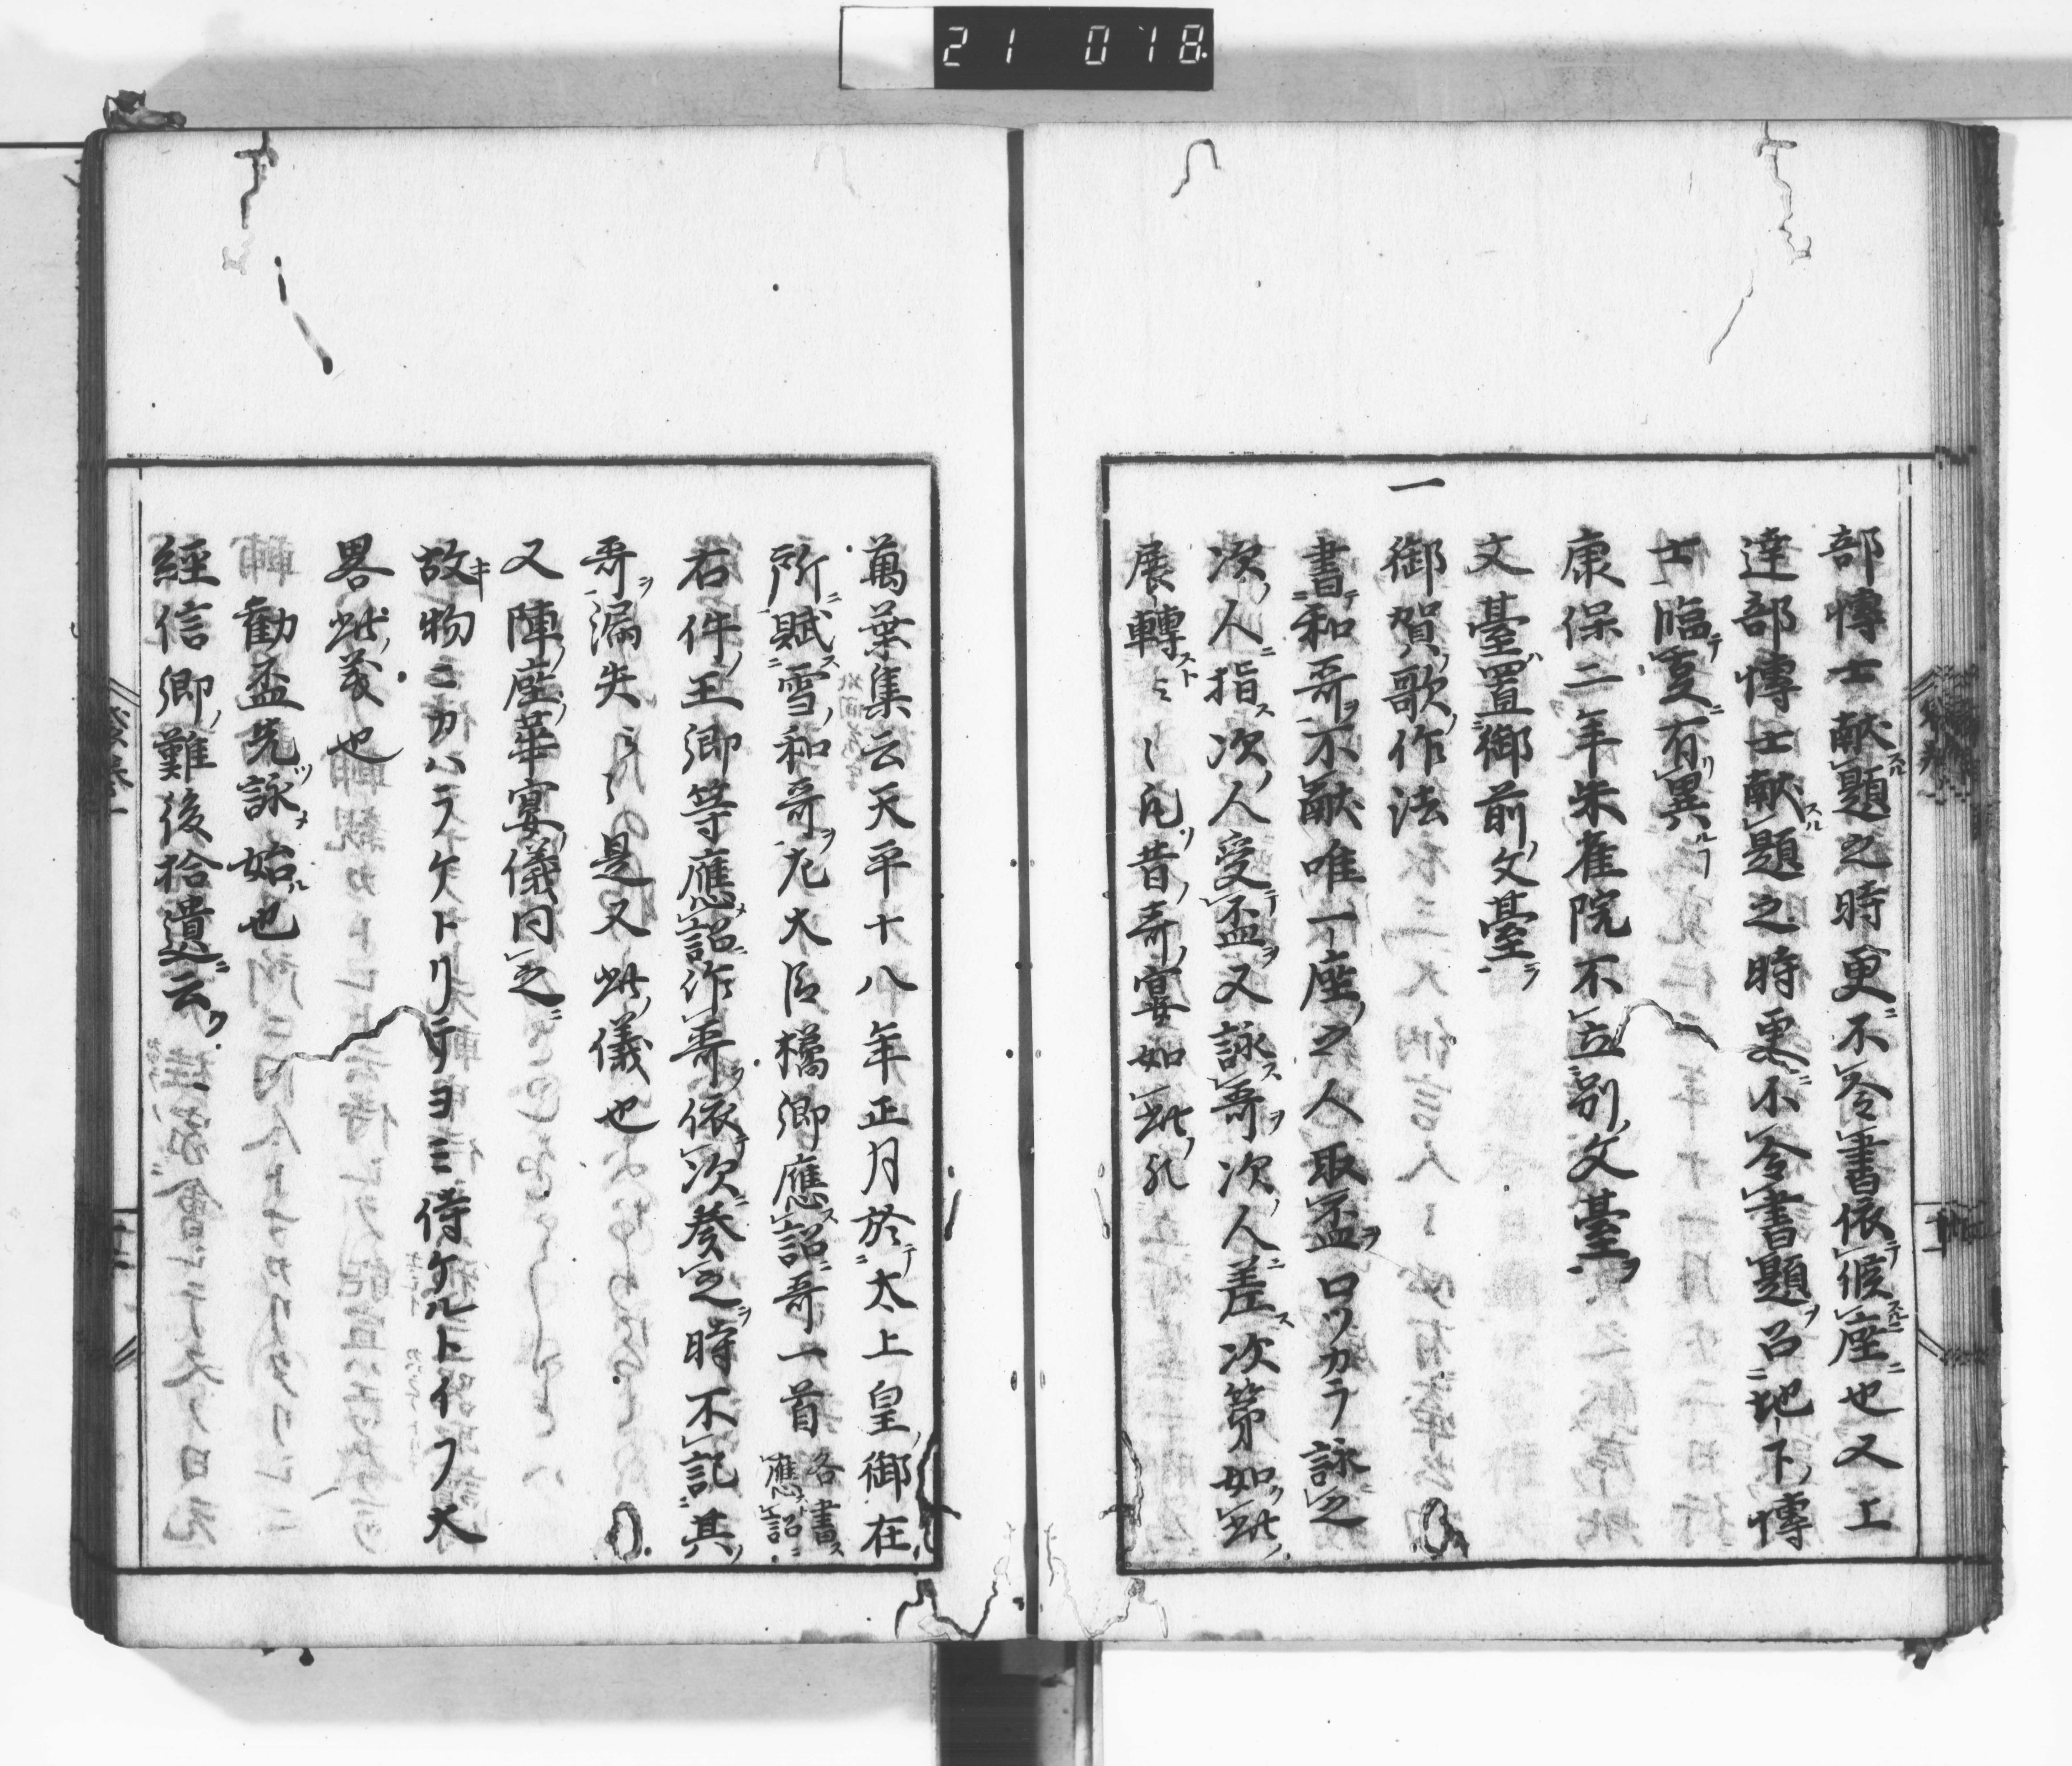 21 018
部博士献題之時更不令書依候座也又上
達部博士献題之時更不令書題召地下博
士臨叓有異
康保二年朱雀院不立別文臺
文臺置御前文臺
一御賀歌作法
書和哥不献唯一座之人取盃口ツカラ詠之
次人指次人受盃又詠哥次人差次第如此
展轉ミ凡昔哥宴如此
萬葉集云天平十八年正月於太上皇御在
所賦雪和哥左大臣橘卿應詔哥一首各書應詔
右件王卿等應詔作哥依次奏之時不記其
哥漏失云々是又此儀也
又陣座華宴儀同之
故物ニカハラケトリテヨミ侍ケルトイフ大
畧此義也
勸盃先詠始也
經信卿難後拾遺云